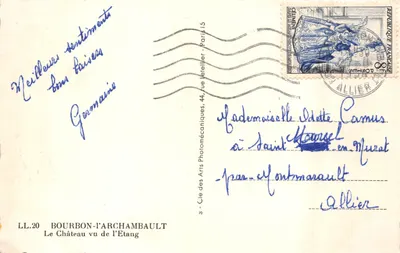 Meilleurs sentiments
bons baisers
Germaine
LL.20 BOURBON-l'ARCHAMBAULT
Le Château vu de l'Etang
a - Cie des Arts Photomécaniques, 44, rue Letellier - Paris 15
8F
ALLIER
Mademoiselle Odette Camus
à Saint Marcel en-Murat
par-Montmarault
Allier